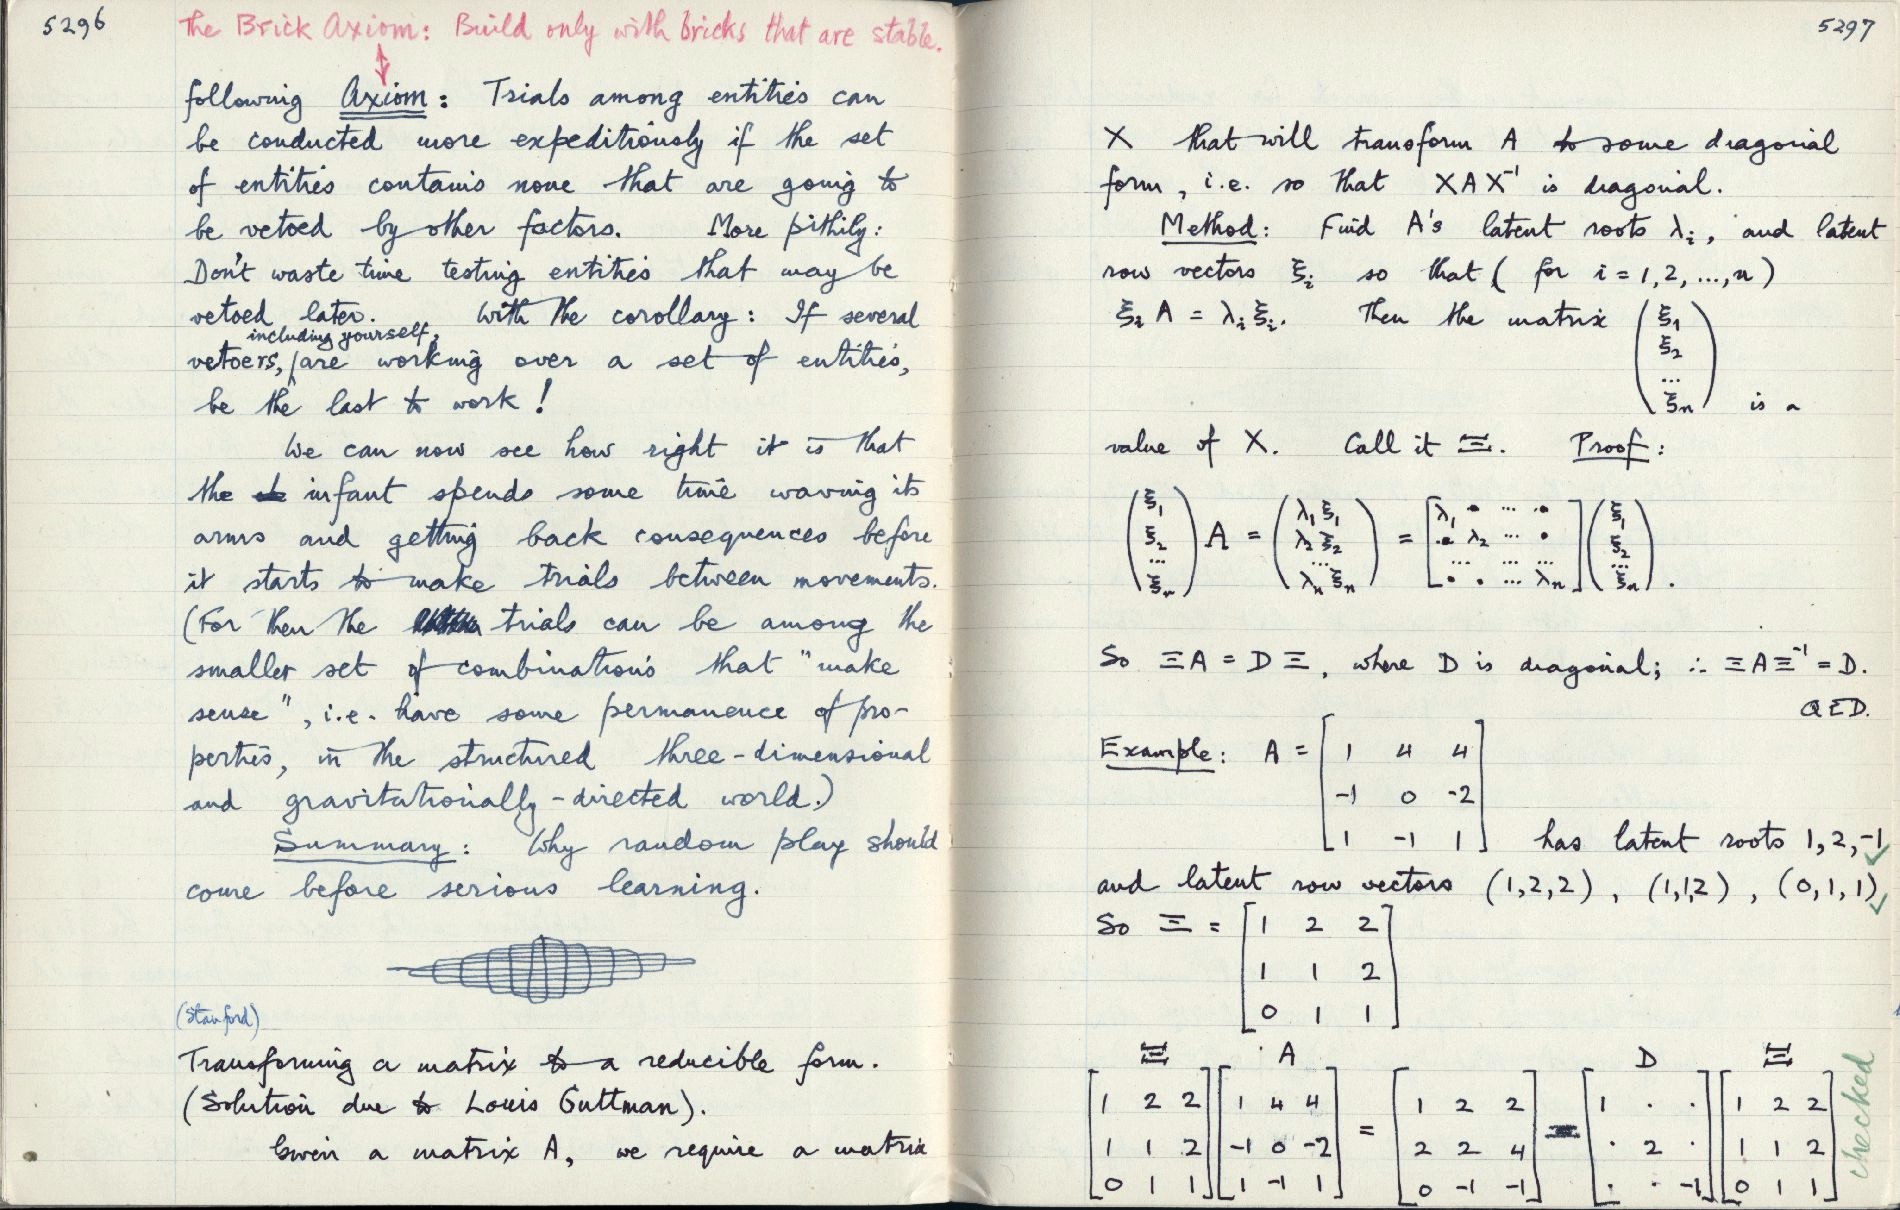 5296
The Brick Axiom: Build only with bricks that are stable.
following Axiom: Trials among entities can
be conducted more expeditiously if the set
of entities contains none that are going to
be vetoed by other factors. More pithily:
Don't waste time testing entities that may be
vetoed later. With the corollary: If several
including yourself,
vetoers, are working over a set of entities,
be the last to work!
We can now see how right it is that
the infant spends some time waving its
arms and getting back consequences before
it starts to make trials between movements.
(For then the trials can be among the
smaller set of combinations that "make
sense", i.e. have some permanence of pro-
perties, in the structured three-dimensional
and gravitationally-directed world.)
Summary: Why random play should
come before serious learning.
(Stanford)
Transforming a matrix to a reducible form.
(Solution due to Louis Guttman).
Given a matrix A, we require a matrix
5297
X that will transform A to some diagonal
form, i.e. so that XAX⁻¹ is diagonal.
Method: Find A's latent roots λi, and latent
row vectors ξi so that (for i = 1,2,...,n)
ξi A = λi ξi. Then the matrix (ξ1 ξ2 ... ξn) is a
value of X. Call it Ξ. Proof:
(ξ1 ξ2 ... ξn) A = (λ1ξ1 λ2ξ2 ... λnξn) = [λ1 · ... ·
· λ2 ... ·
... ... ... ...
· · ... λn] (ξ1 ξ2 ... ξn).
So ΞA = DΞ, where D is diagonal; ∴ ΞAΞ⁻¹ = D.
QED.
Example: A = [1 4 4
-1 0 -2
1 -1 1] has latent roots 1, 2, -1
and latent row vectors (1,2,2), (1,1,2), (0,1,1)
So Ξ = [1 2 2
1 1 2
0 1 1]
Ξ A D Ξ
[1 2 2] [1 4 4] [1 2 2] [1 · ·] [1 2 2]
[1 1 2] [-1 0 -2] = [2 2 4] = [· 2 ·] [1 1 2]
[0 1 1] [1 -1 1] [0 -1 -1] [· · -1] [0 1 1]
checked